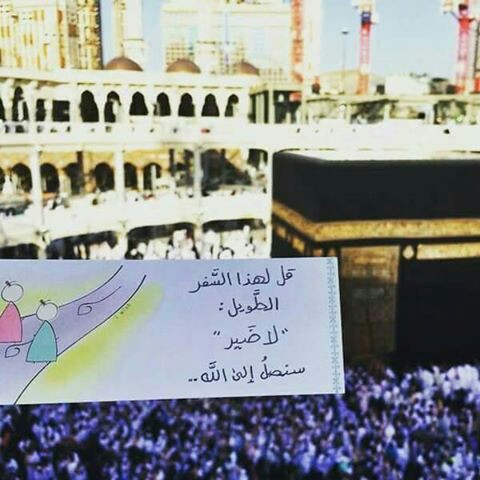 قل لهذا السَّفر
الطَّويل :
"لا ضَير"
سنصلُ إلىٰ اللَّه ..